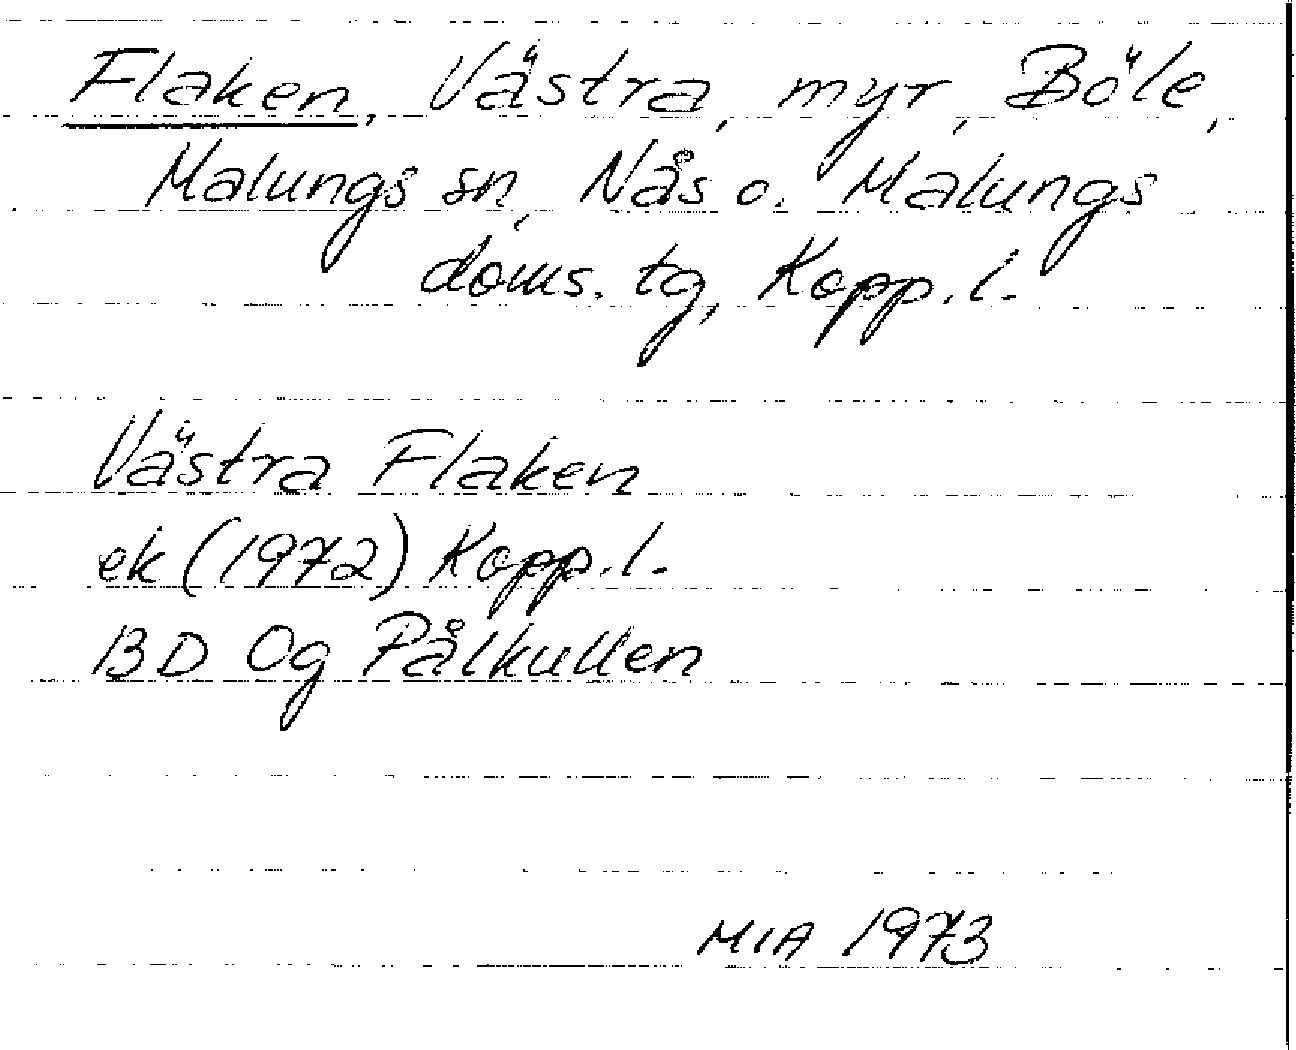 Flaken, Västra, myr, Böle,
Malungs sn, Nås o. Malungs
doms. tg, Kopp. l.
Västra Flaken
ek (1972) Kopp. l.
BD Og Pålkullen
MIA 1973